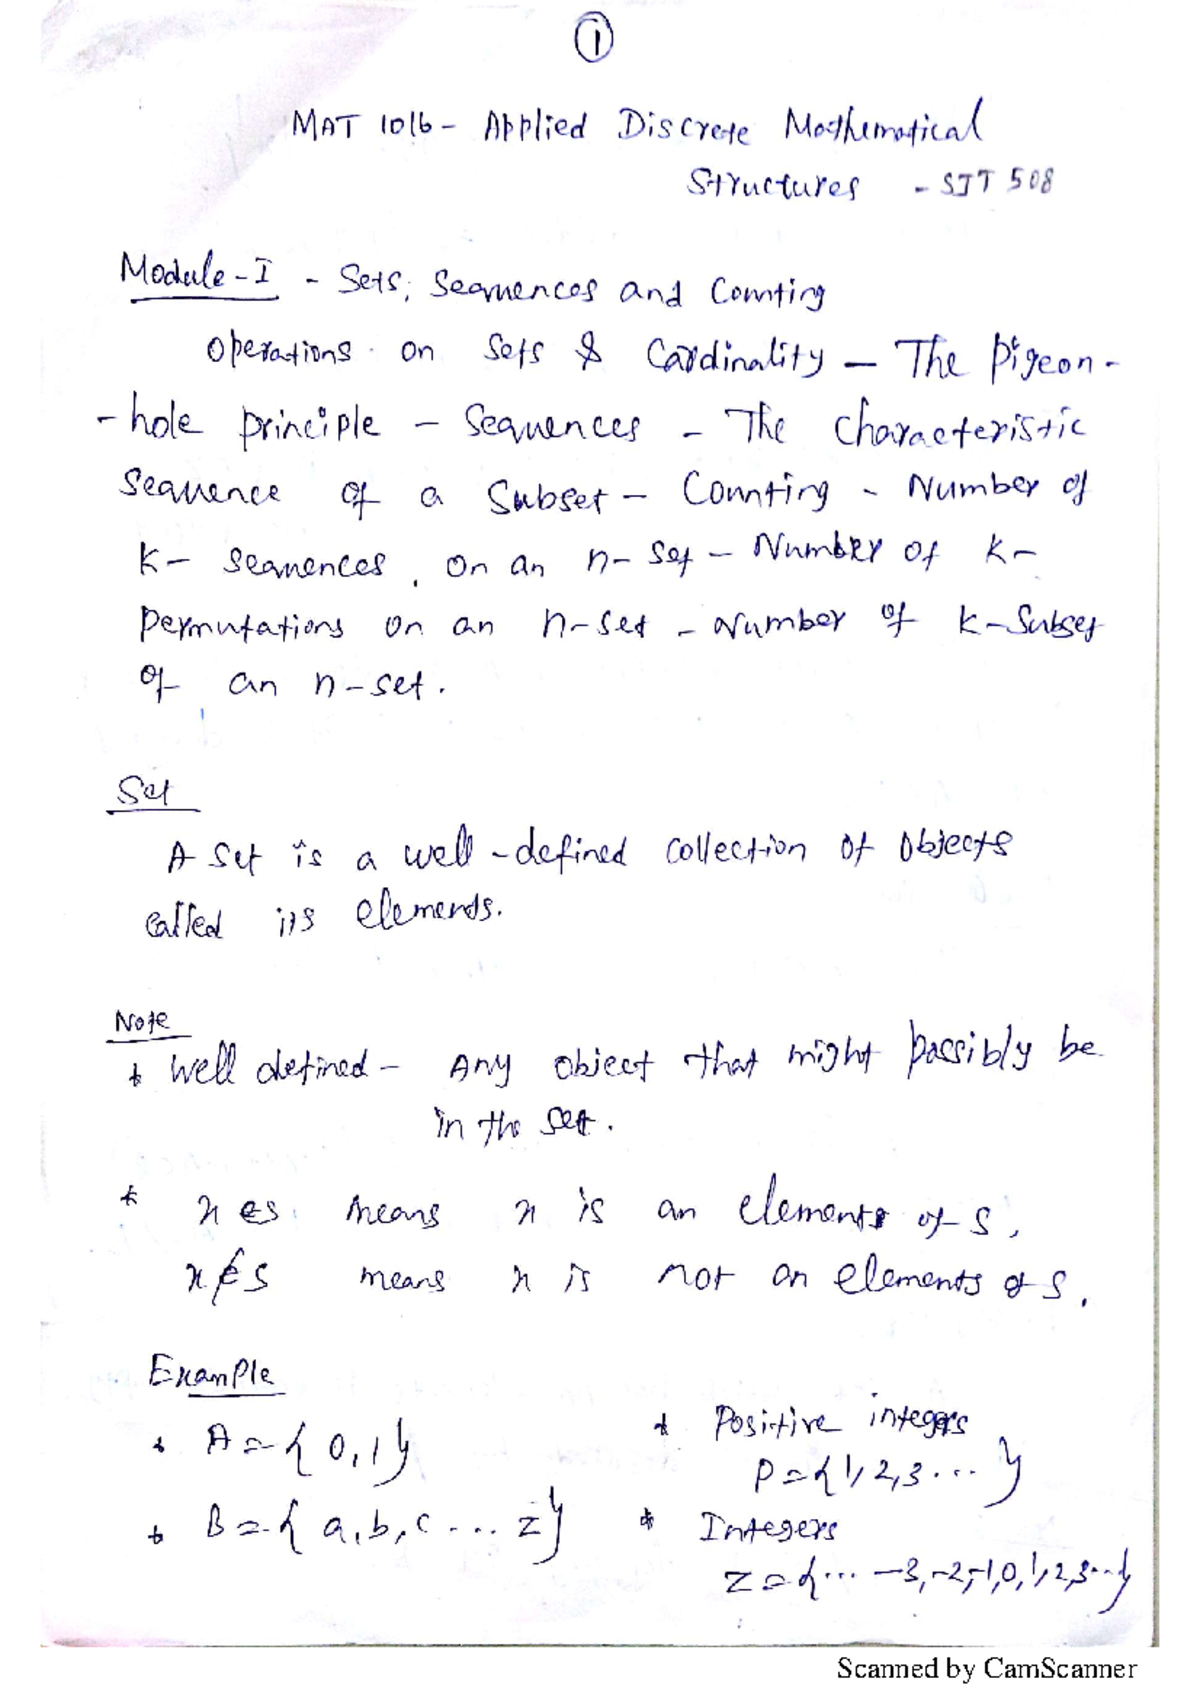 1
MAT 1016 - Applied Discrete Mathematical
Structures - SJT 508
Module-I - Sets, Sequences and Counting
Operations on Sets & Cardinality - The Pigeon-
-hole principle - Sequences - The Characteristic
Sequence of a Subset - Counting - Number of
k- sequences, on an n-set - Number of k-
Permutations on an n-set - Number of k-Subset
of an n-set.
Set
A set is a well-defined collection of objects
called its elements.
Note
* Well defined - Any object that might possibly be
in the set.
* x ∈ S means x is an elements of S,
x ∉ S means x is not an elements of S.
Example
* A = { 0, 1 }
* Positive integers
P = { 1, 2, 3 ... }
* B = { a, b, c ... z }
* Integers
Z = { ... -3, -2, -1, 0, 1, 2, 3 ... }
Scanned by CamScanner